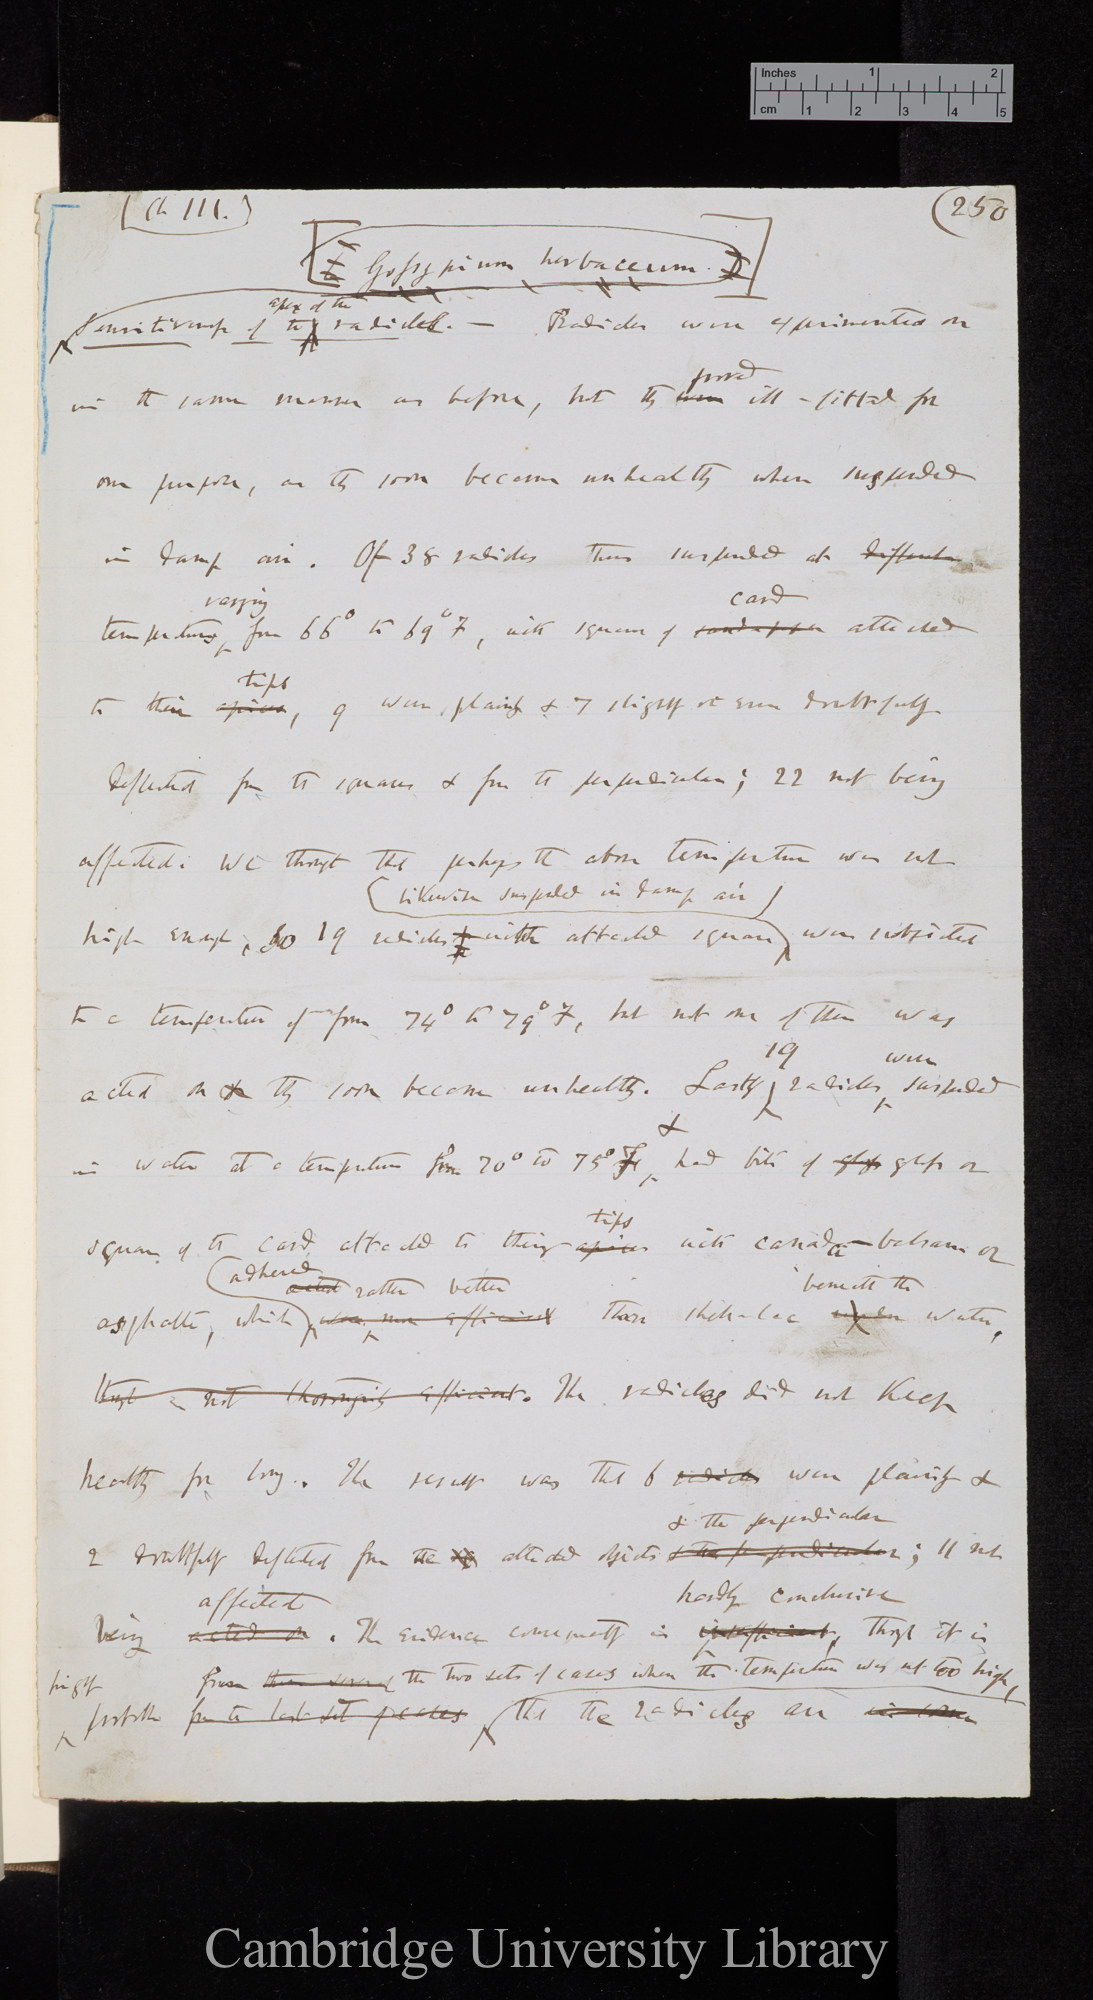 Inches 1 2
cm 1 2 3 4 5
(Ch III.) (250
[Gossypium herbaceum.]
apex of the
Sensitiveness of the radicle. — Radicles were experimented on
proved
in the same manner as before, but they were ill-fitted for
our purpose, as they soon became unhealthy when suspended
in damp air. Of 38 radicles thus suspended at different
varying card
temperatures, from 66° to 69° F, with squares of sand-paper attached
tips
to their apices, 9 were plainly & 7 slightly or even doubtfully
deflected from the squares & from the perpendicular; 22 not being
affected. We thought that perhaps the above temperature was not
(likewise suspended in damp air)
high enough, so 19 radicles with attached squares, were subjected
to a temperature of from 74° to 79° F, but not one of them was
19 were
acted on & they soon became unhealthy. Lastly, radicles suspended
&
in water at a temperature from 70° to 75° F, had bits of glass or
tips
squares of the card attached to their apices with canada-balsam or
adhered rather better beneath the
asphalte, which were more efficient than shell-lac under water,
though not thoroughly efficient. The radicles did not keep
healthy for long. The result was that 6 radicles were plainly &
& the perpendicular
2 doubtfully deflected from the attached objects & the perpendicular; 11 not
affected hardly conclusive
being acted on. The evidence consequently is insufficient, though it is
from the two sets of cases when the temperature was not too high,
probable from the last set of cases that the radicles are